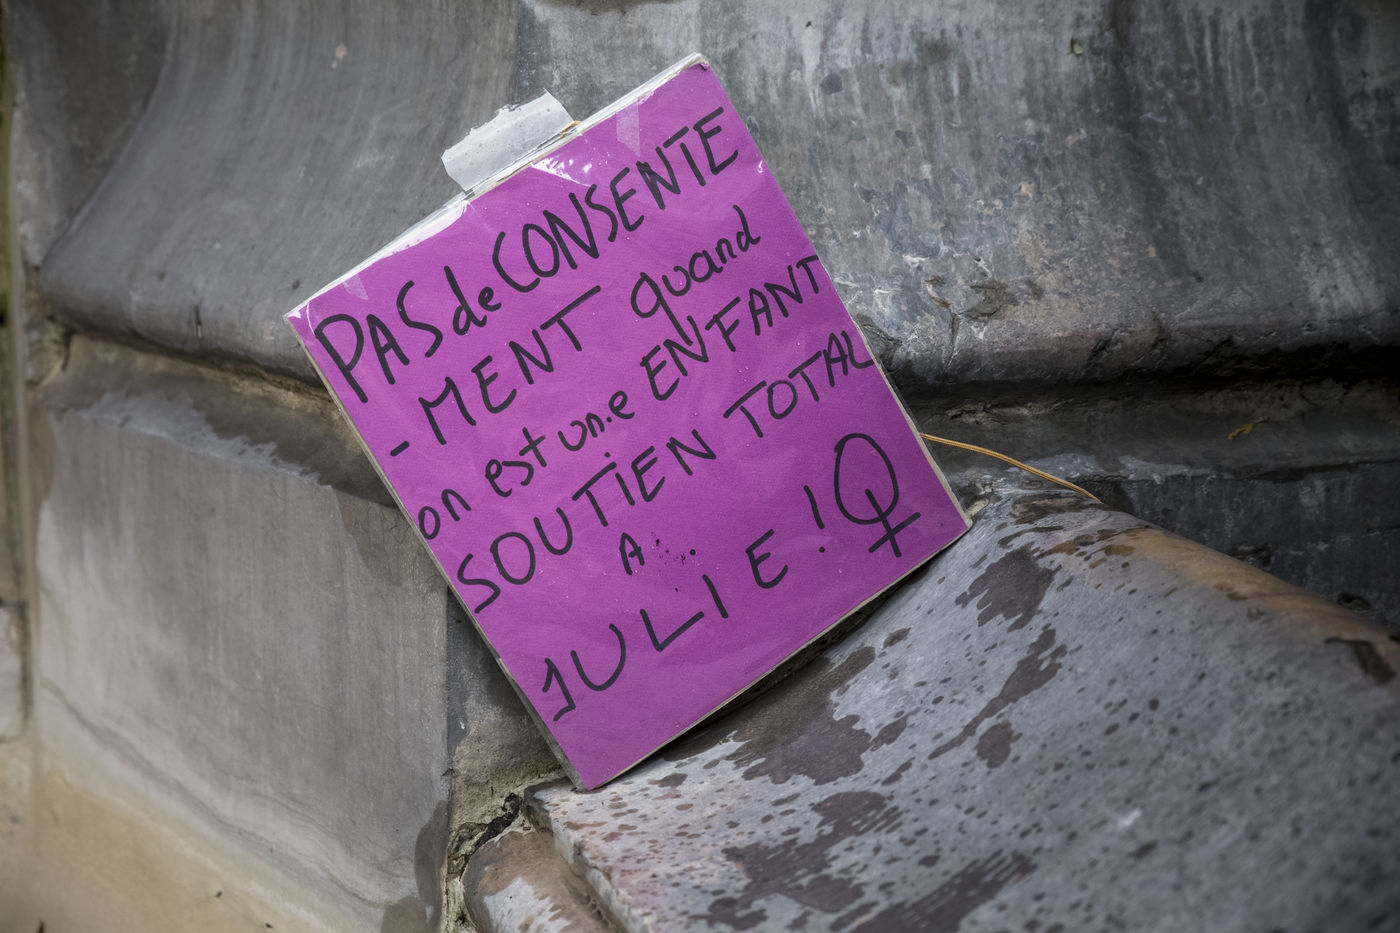 PAS de CONSENTE
-MENT quand
on est un.e ENFANT
SOUTIEN TOTAL
A
JULIE !